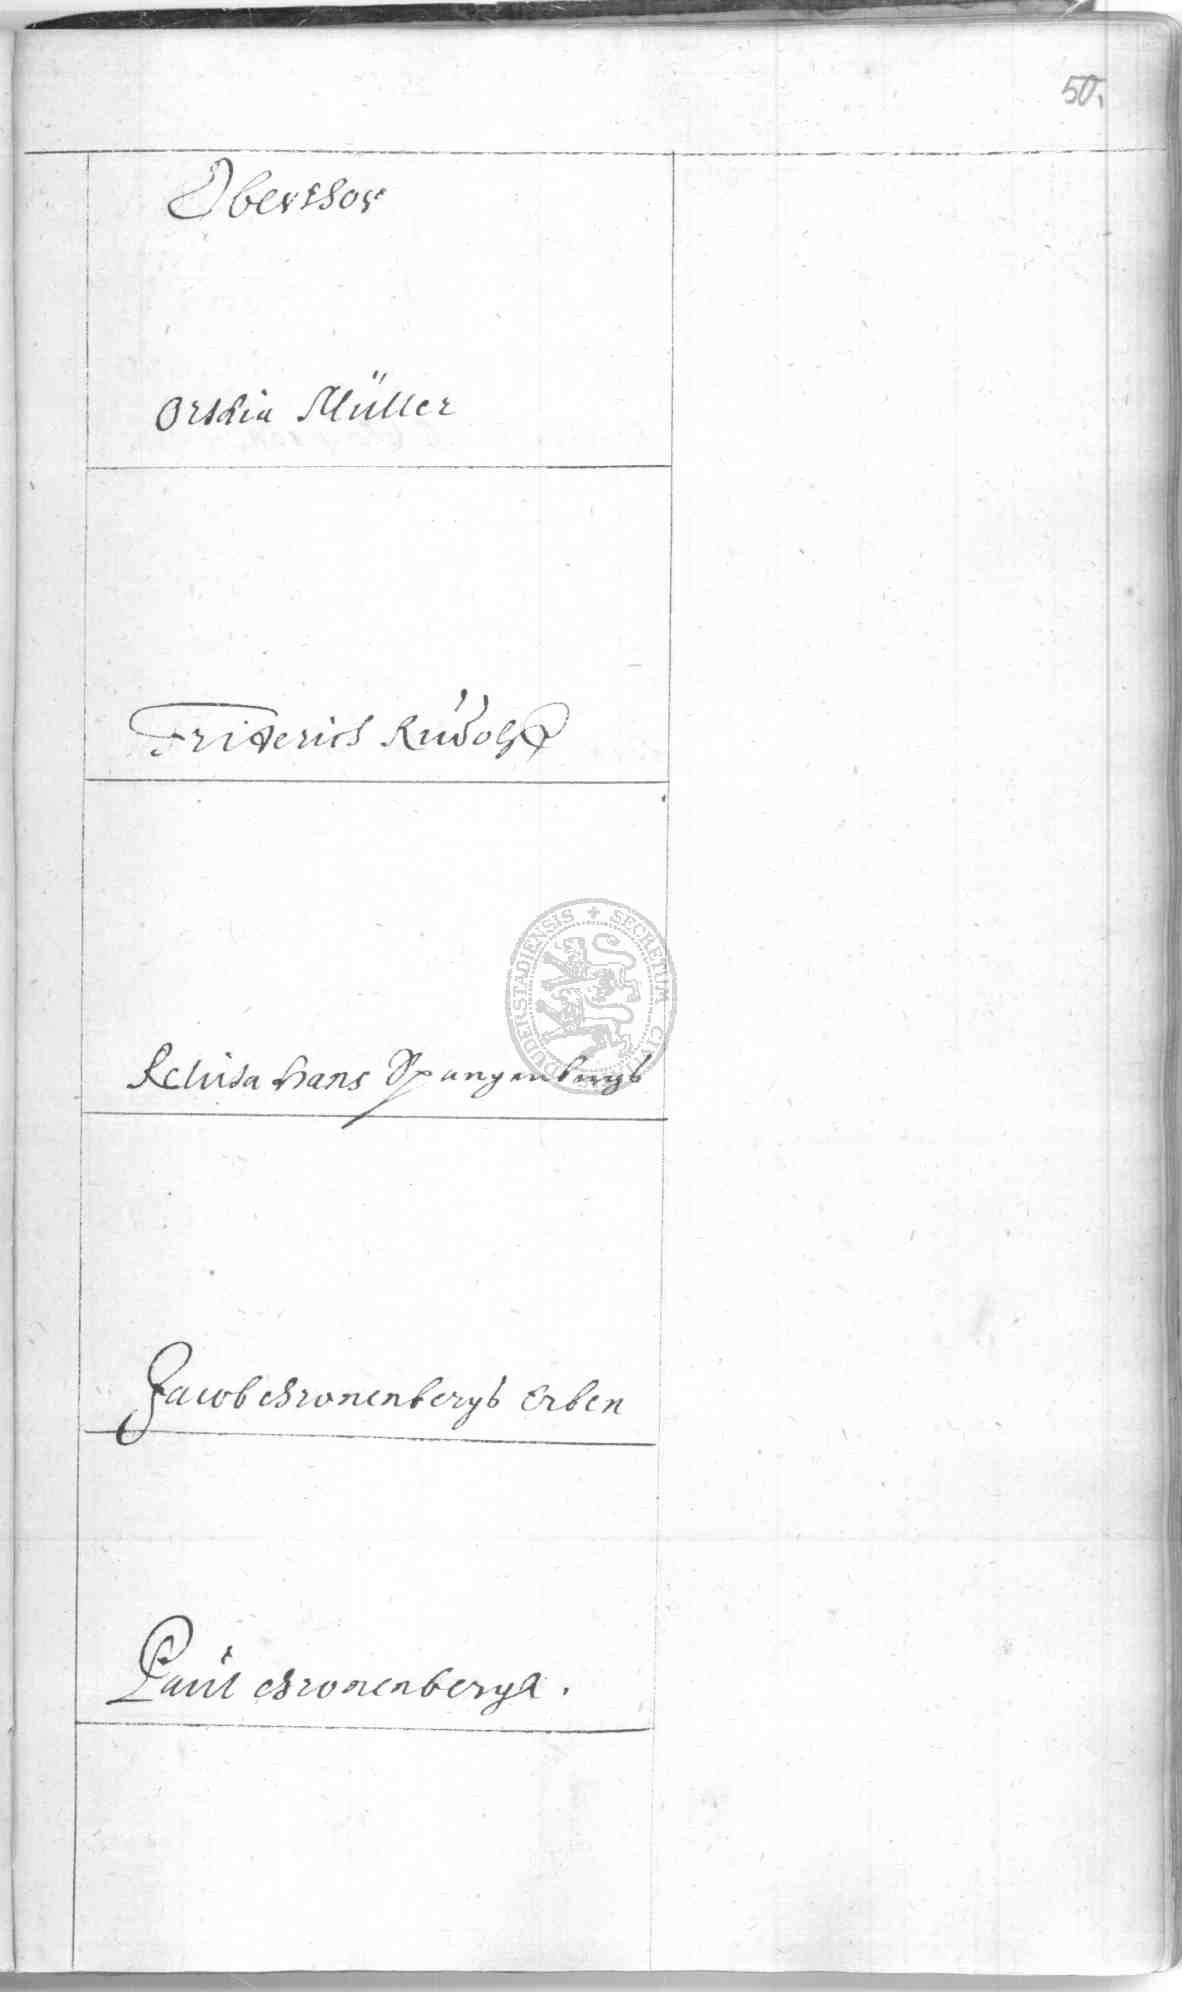 50.
Oberthor
Orthia Müller
Friderich Rudolph
Relicta Hans Spangenbergs
Jacob Cronenbergs Erben
Paul Cronenbergk.
SECRETUM CIVITATIS DUDERSTADIENSIS